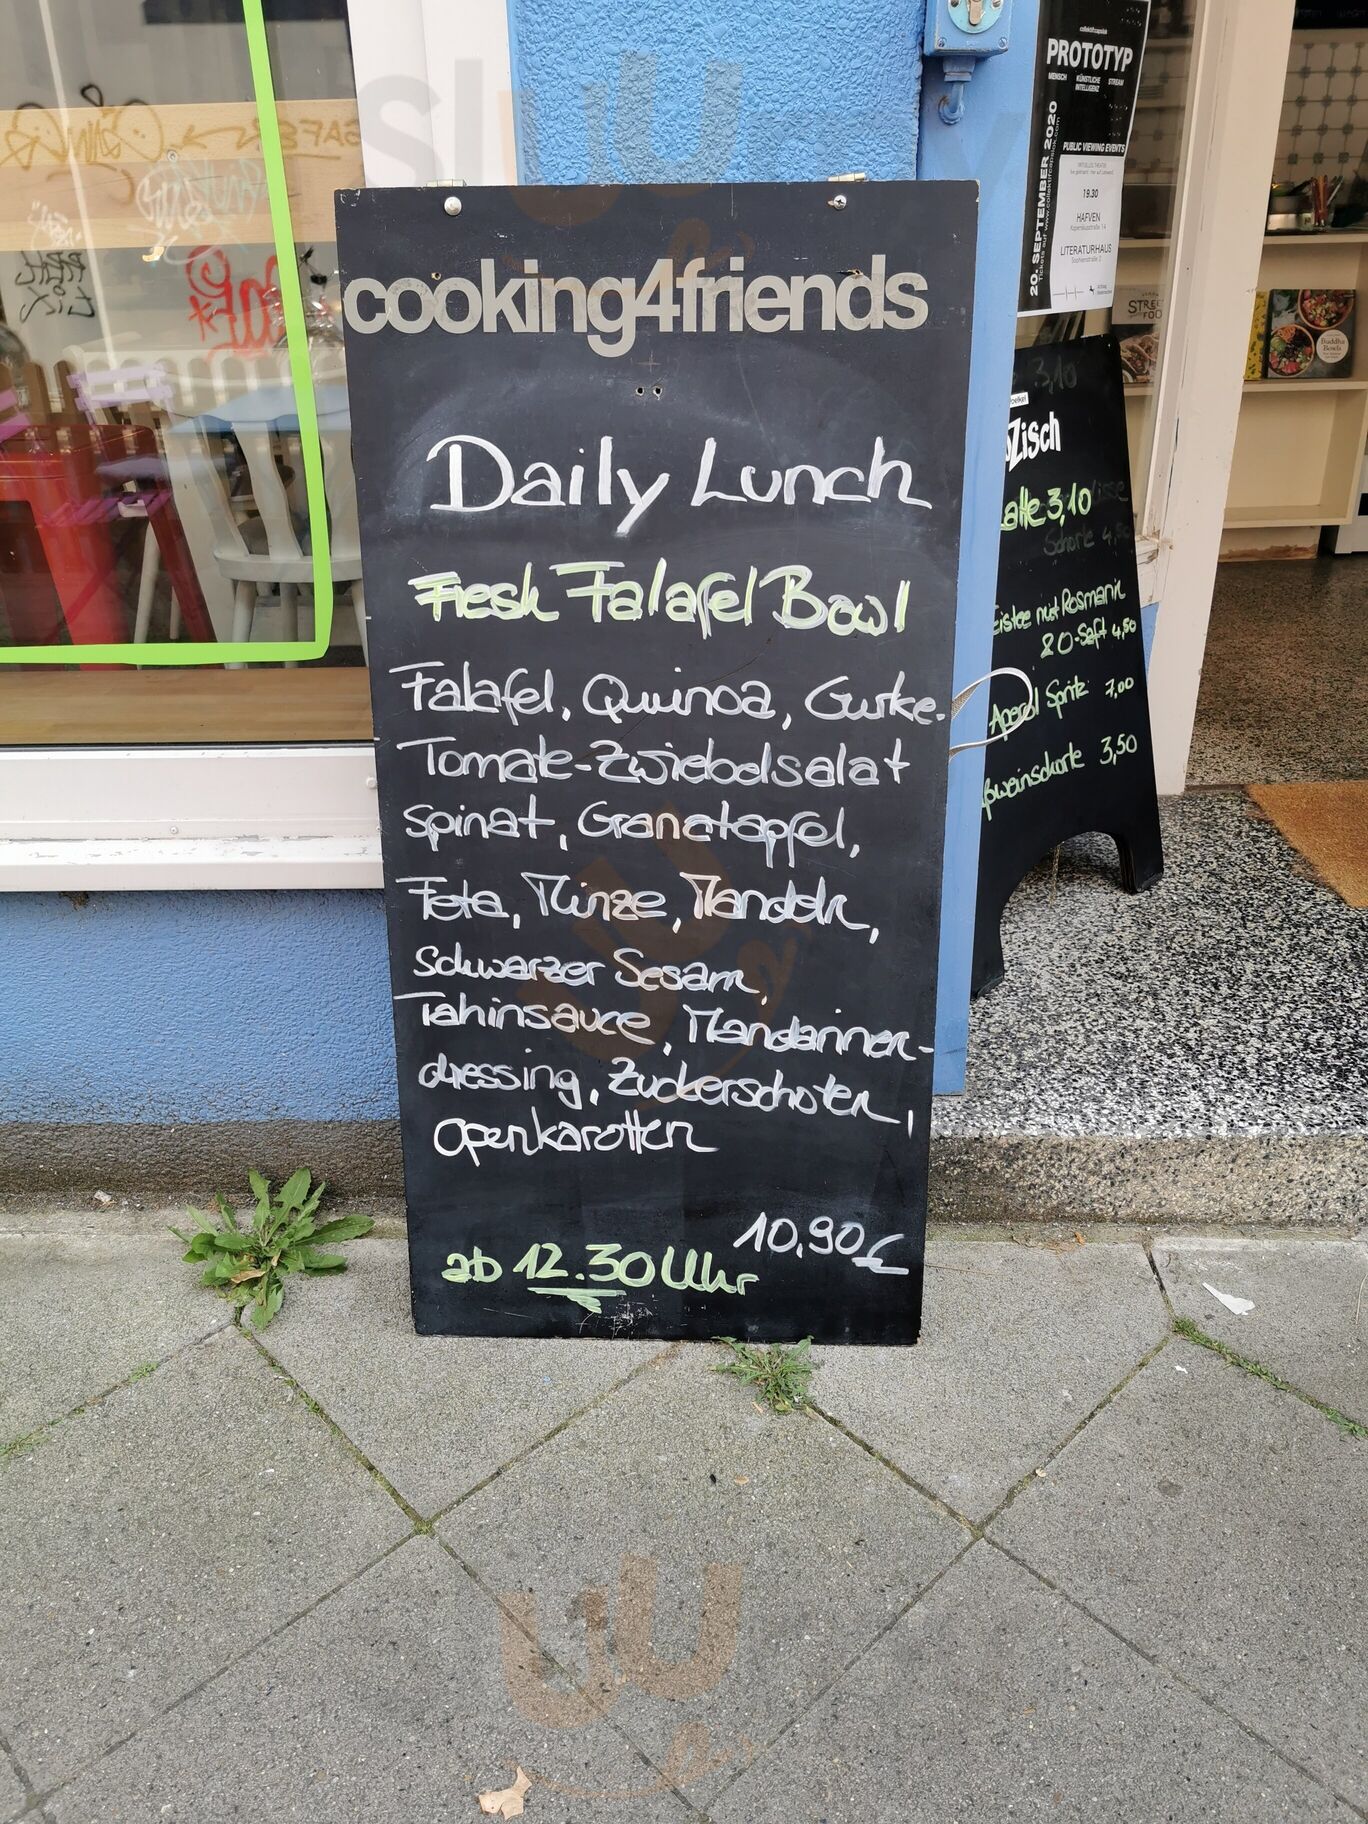 cooking4friends
Daily Lunch
Fresh Falafel Bowl
Falafel, Quinoa, Gurke-
Tomate-Zwiebelsalat
Spinat, Granatapfel,
Feta, Minze, Mandeln,
Schwarzer Sesam,
Tahinsauce, Mandarinen-
dressing, Zuckerschoten,
Ofenkarotten
10,90€
ab 12.30 Uhr
PROTOTYP
MENSCH KÜNSTLICHE INTELLIGENZ STREAM
20. SEPTEMBER 2020
PUBLIC VIEWING EVENTS
19.30
HAFVEN
LITERATURHAUS
3,10
Zisch
3,10
Schorle 4,50
mit Rosmarin
& O-Saft 4,50
Aperol Spritz 7,00
weinschorle 3,50
STREET
FOOD
Buddha
Bowls